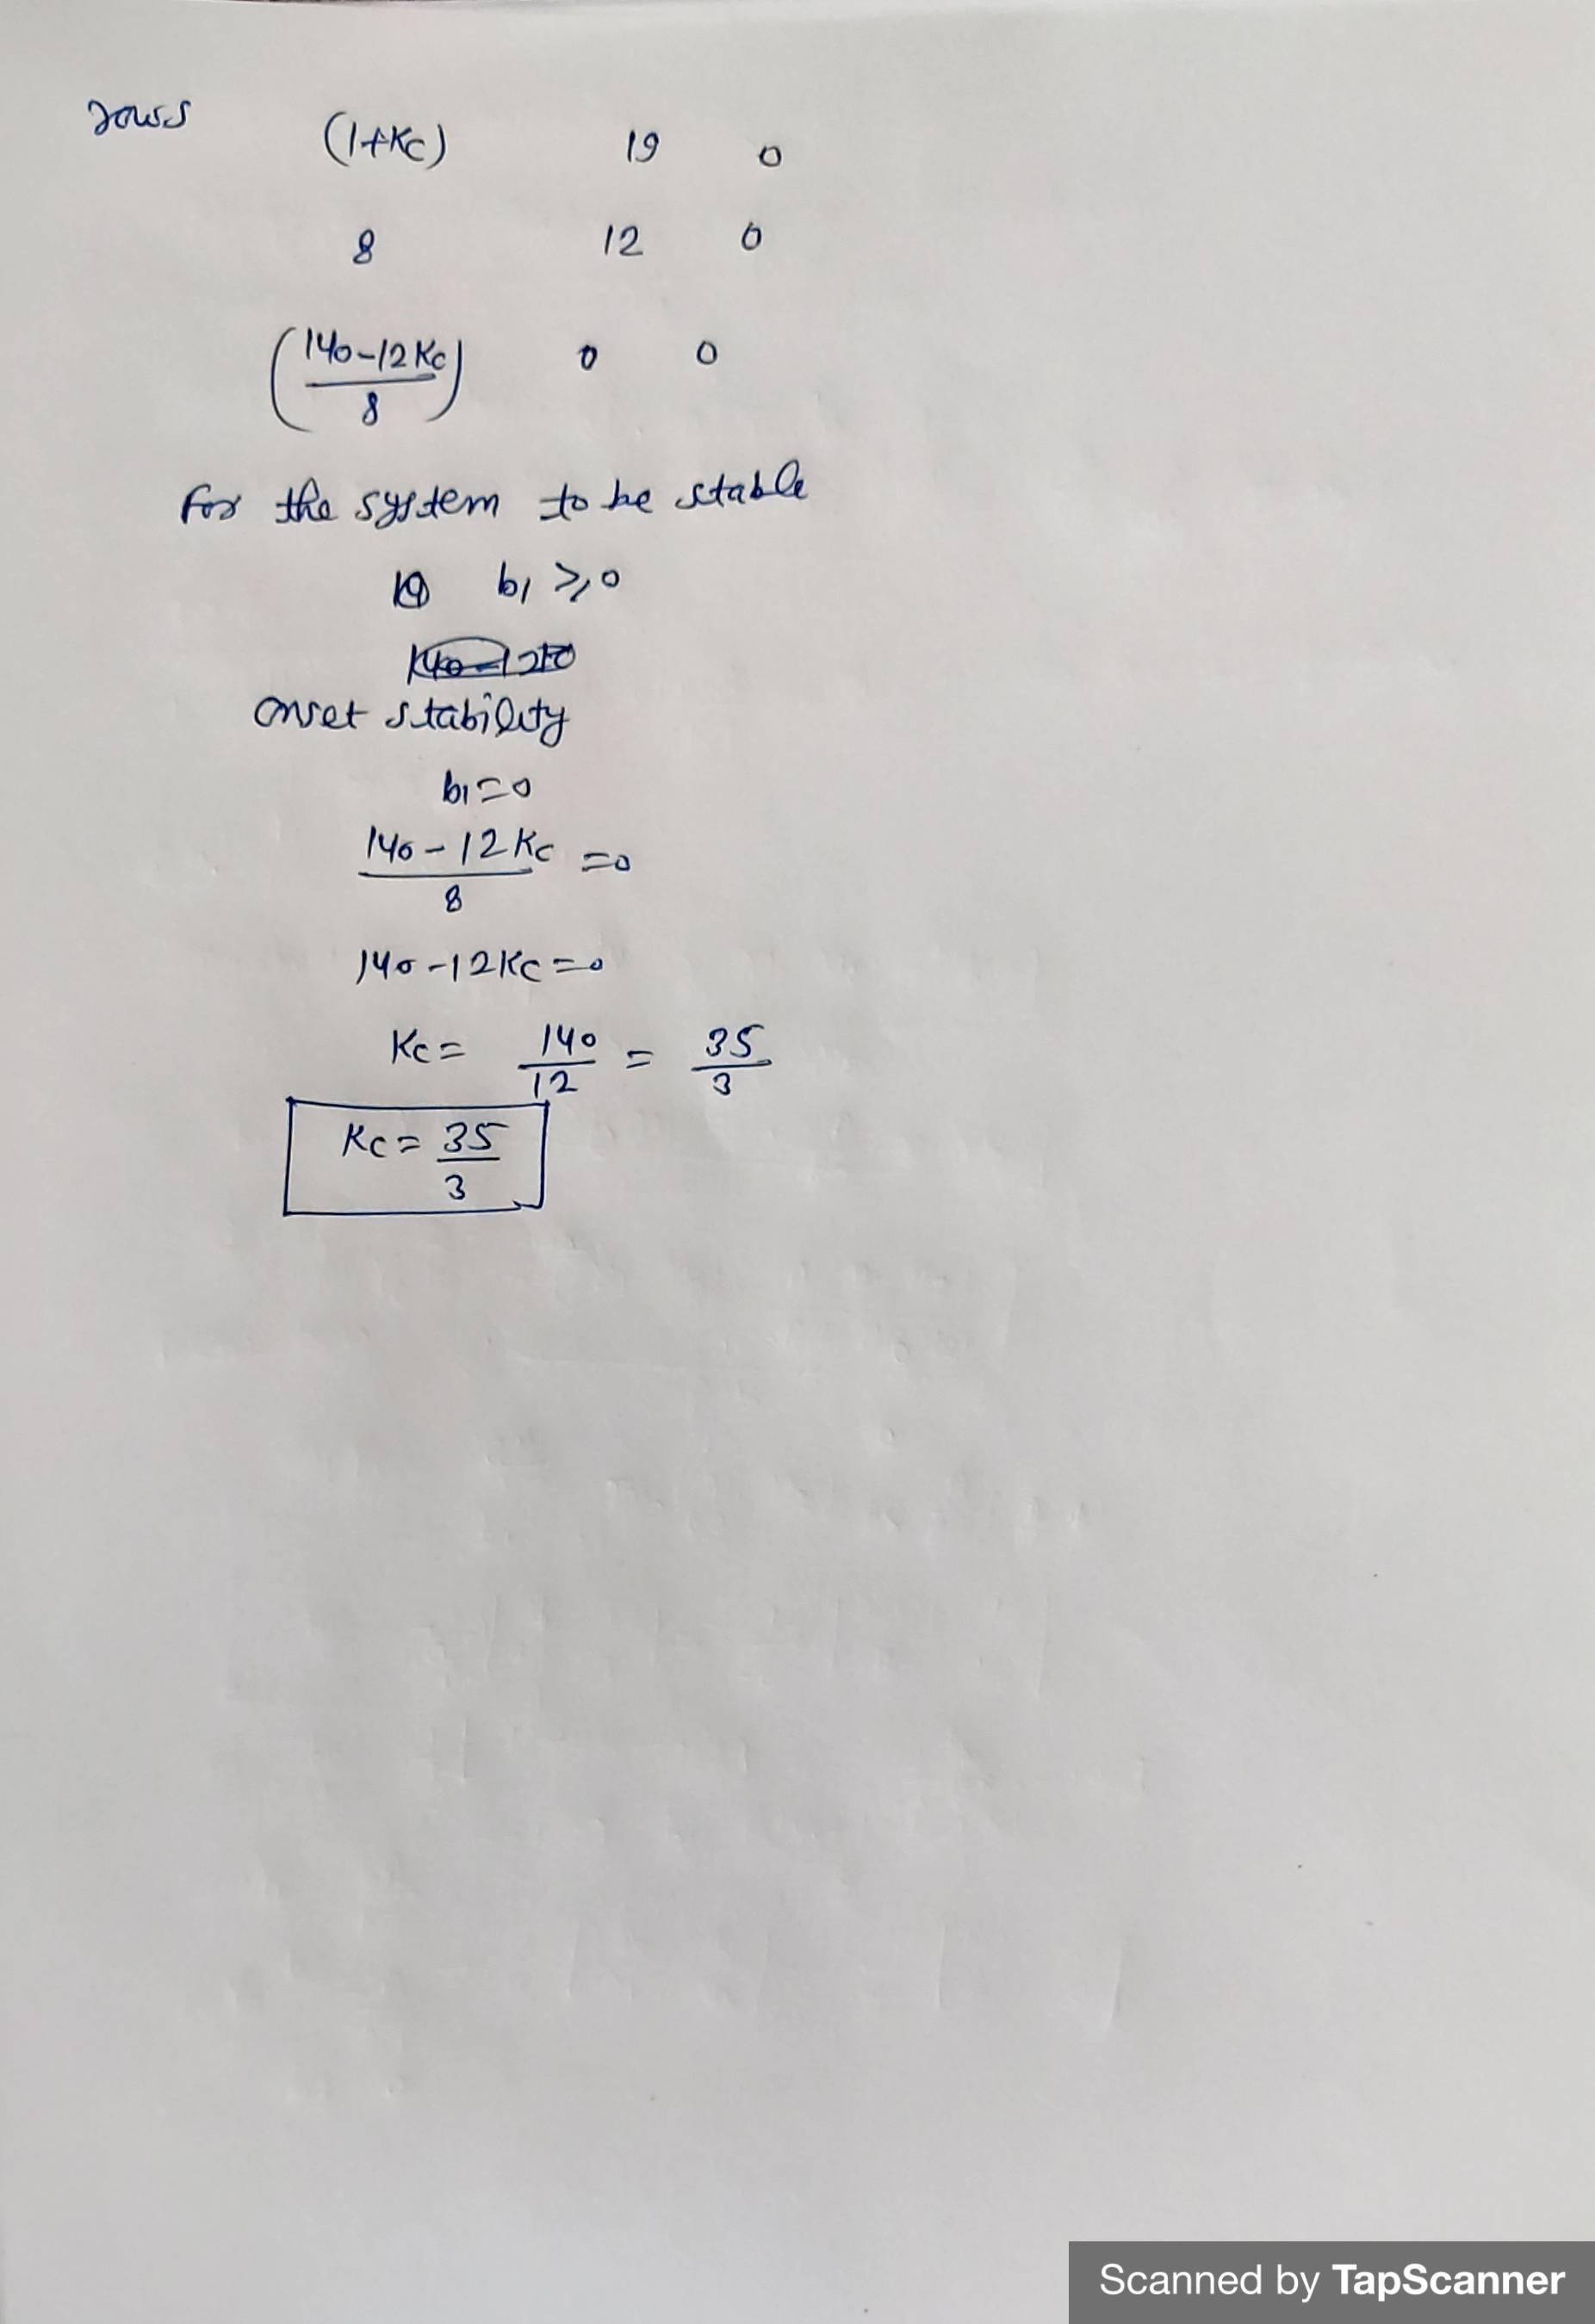 rows
(1+Kc) 19 0
8 12 0
(140-12Kc)/8 0 0
for the system to be stable
b1 ≥ 0
onset stability
b1=0
(140-12Kc)/8 =0
140-12Kc=0
Kc= 140/12 = 35/3
Kc= 35/3
Scanned by TapScanner